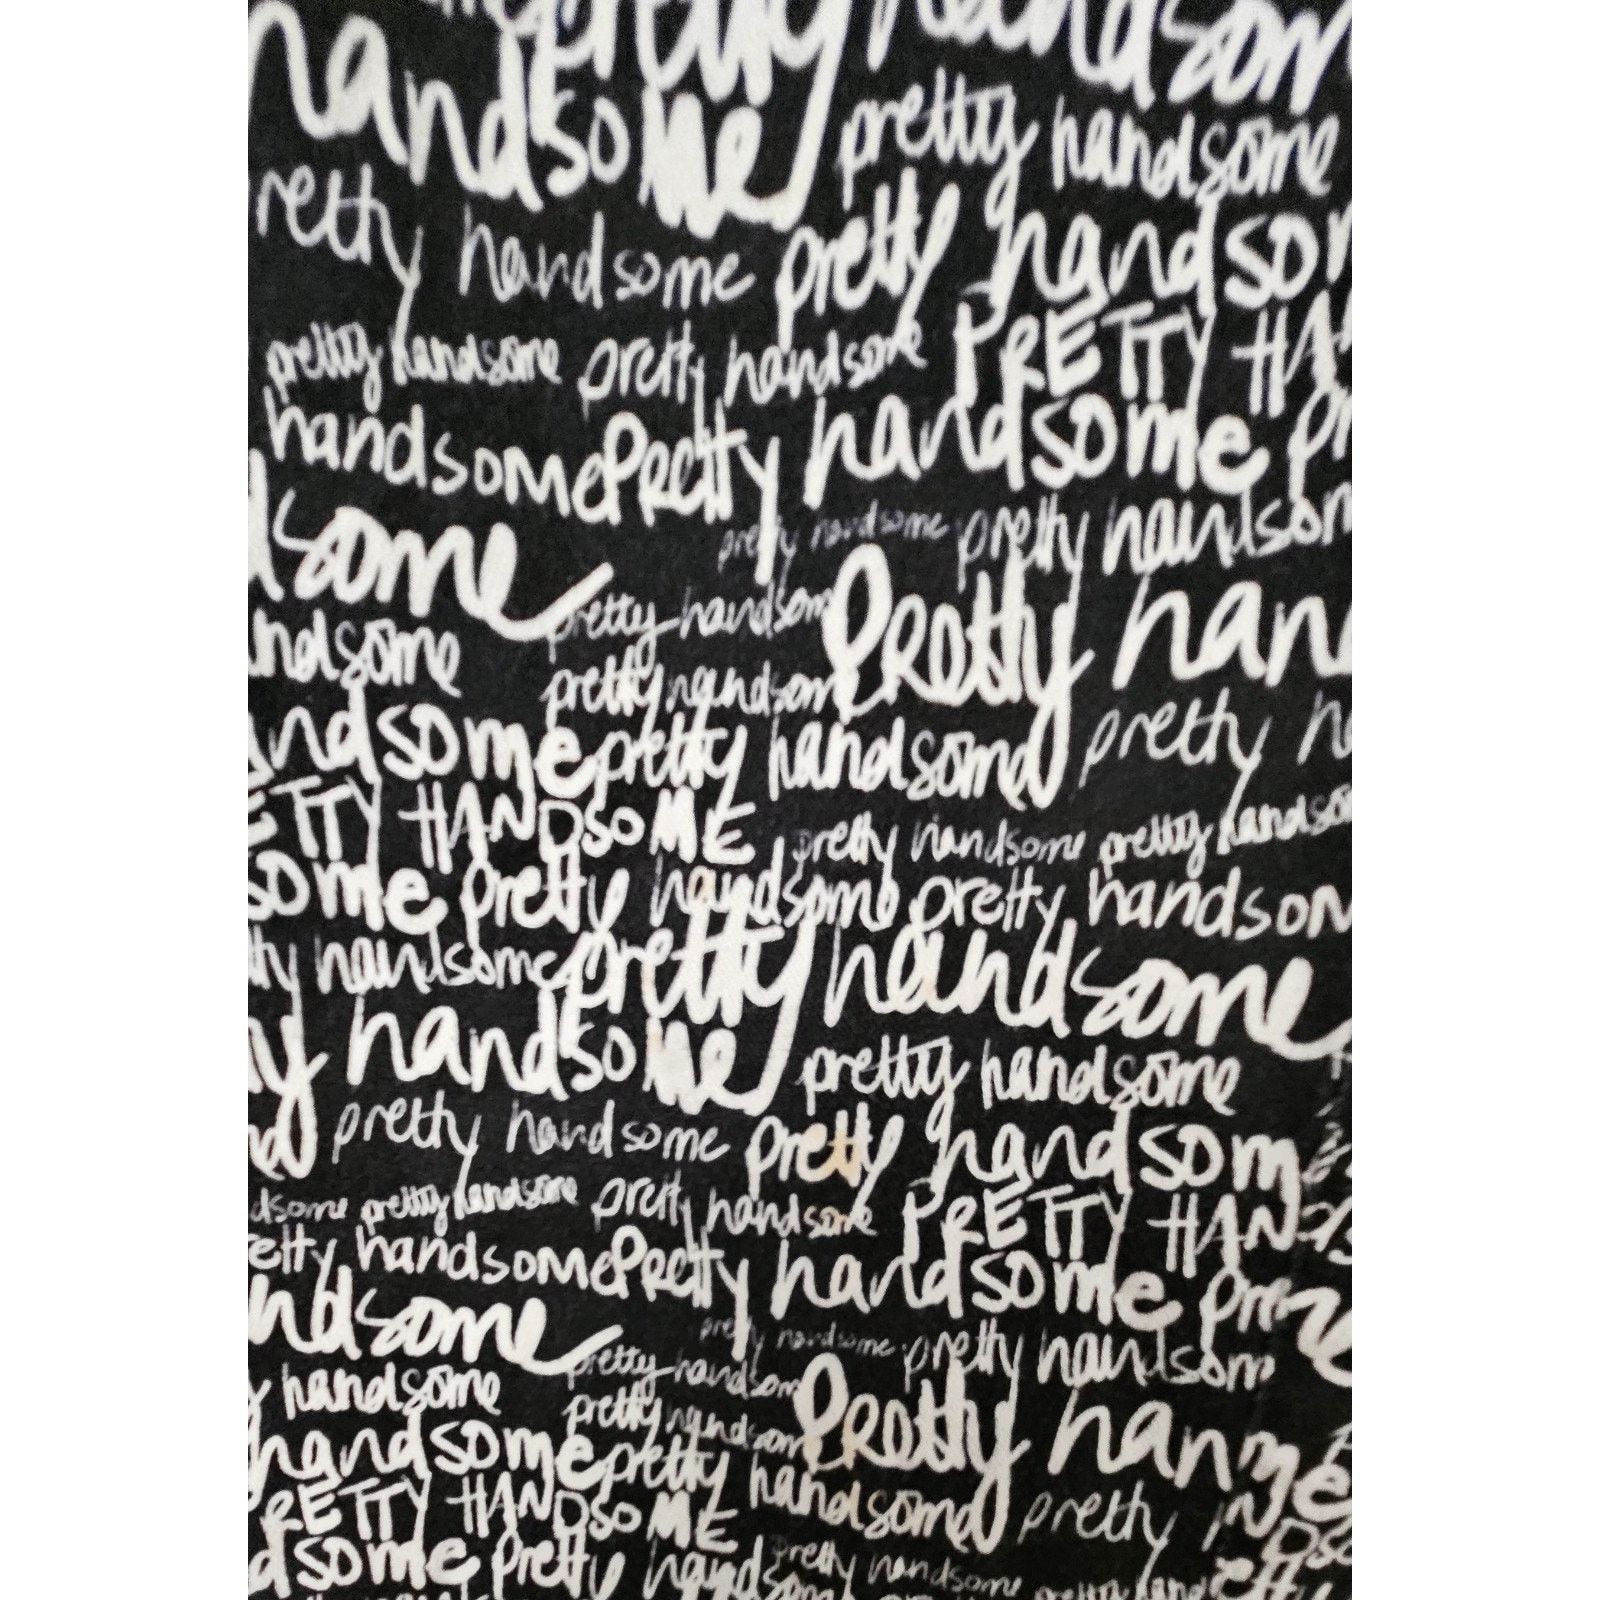 pretty handsom
handsome pretty handsome
retty handsome pretty handsom
pretty handsome pretty handsome PRETTY HA
handsome Pretty handsome pr
dsome pretty handsome pretty handsom
pretty handsom Pretty han
ndsome pretty handsom
andsome pretty handsome pretty h
ETTY HANDSOME pretty handsome pretty handso
some pretty handsome pretty handsom
tty handsome pretty handsome
y handsome pretty handsome
nd pretty handsome pretty handsom
dsome pretty handsome pretty handsome PRETTY HANDS
etty handsome Pretty handsome pr
ndsome pretty handsome pretty handsom
pretty handsom Pretty han
y handsome pretty handsom
handsome pretty handsome pretty
PRETTY HANDSOME
dsome pretty handsome pretty handsome pretty hand